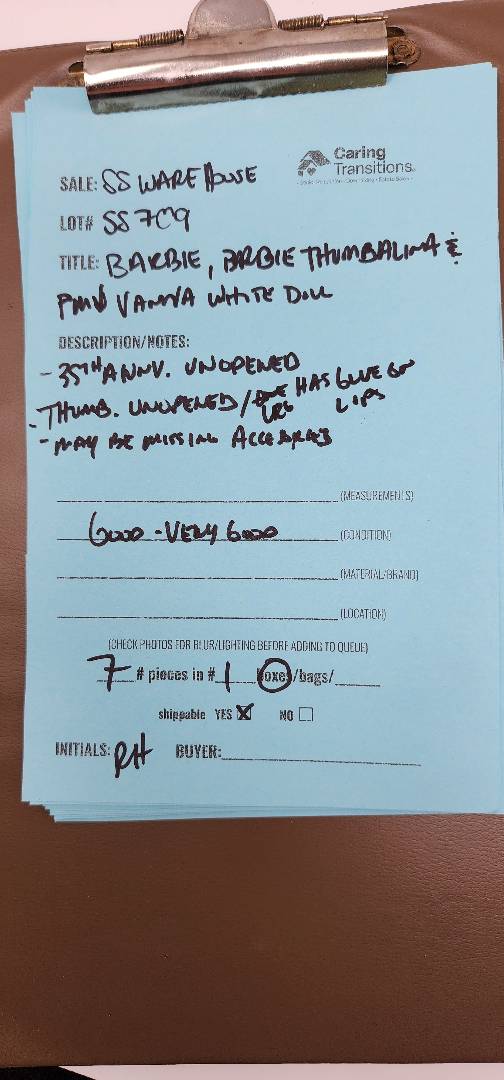 Caring
Transitions
SALE: SS WAREHOUSE
LOT# SS709
TITLE: BARBIE, BRBIE THUMBALINA &
VANNA WHITE DOLL
DESCRIPTION/NOTES:
- 35TH ANNV. UNOPENED
- THUMB. UNOPENED/ HAS GLUE ON
LIPS
- MAY BE MISSING
(MEASUREMENTS)
GOOD - VERY GOOD (CONDITION)
(MATERIAL/BRAND)
(LOCATION)
(CHECK PHOTOS FOR BLUR/LIGHTING BEFORE ADDING TO QUEUE)
7 # pieces in # 1 boxes/bags/
shippable YES X NO
INITIALS: RH BUYER: